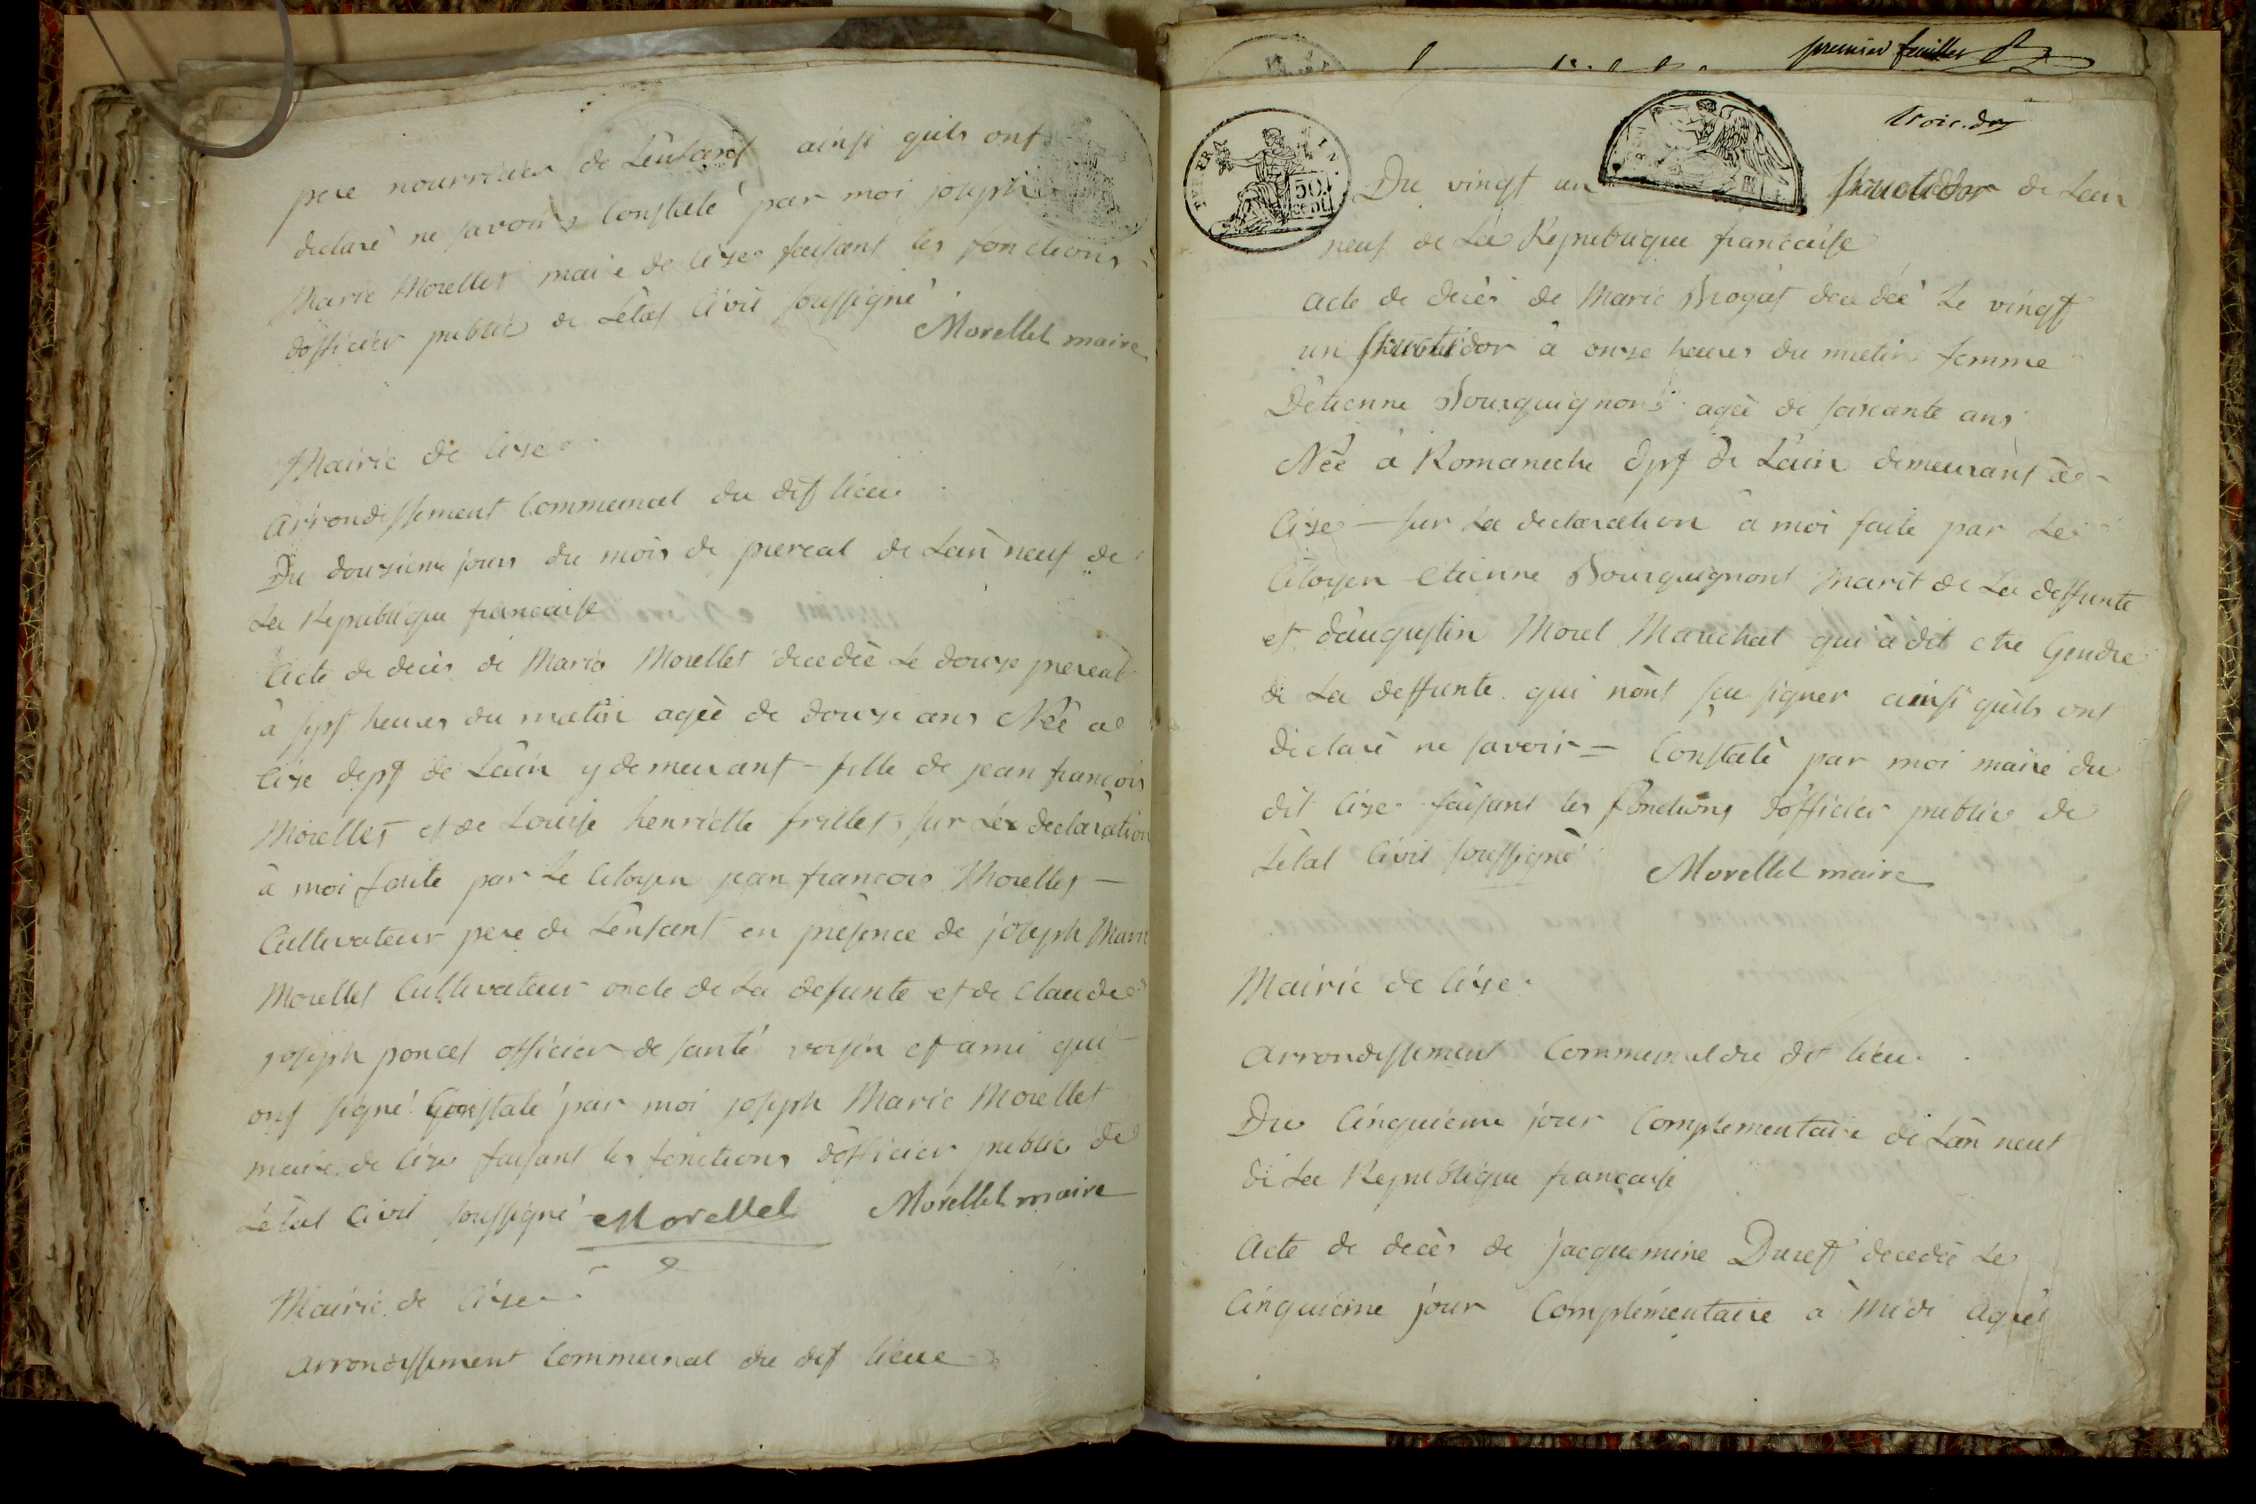 pere nourricier de Lenfant ainsi quils ont
declaré ne savoir, Constaté par moi joseph
Marie Morellet maire de Cize faisant les fonctions
dofficier public de Létat Civil soussigné
Morellet maire
Mairie de Cize
arrondissement Communal du dit lieu
Du douzieme jour du mois de prereal de Lan neuf de
La Republique francaise
Acte de decès de Marie Morellet decedée Le douze prereal
à sept heures du matin agée de douze ans Née a
Cize dept de Lain y demeurant - fille de jean françois
Morellet et de Louise henriette frillet, sur La declaration
à moi faite par Le Citoyen jean francois Morellet -
Cultivateur pere de Lenfant en presence de joseph Marie
Morellet Cultivateur oncle de La defunte et de Claude
joseph poncet officier de santé voisin et ami qui
ont signé Constaté par moi joseph Marie Morellet
maire de Cize faisant les fonctions dofficier public de
Létat Civil soussigné Morellet Morellet maire
Mairie de Cize
arrondissement Communal du dit lieue
premier feuillet
trois.
50 cent
Du vingt un fructidor de Lan
neuf de La Republique francaise
acte de decès de Marie Brogat decedée Le vingt
un fructidor à onze heures du matin femme
Détienne Bourguignon agée de soixante ans
Née à Romaneche dpt de Lain demeurant à -
Cize - sur La declaration à moi faite par Le
Citoyen etienne Bourguignont marit de La deffunte
et daugustin Morel Marichal qui à dit etre Gendre
de La deffunte qui nont seu signer ainsi quils ont
declaré ne savoir = Constaté par moi maire du
dit Cize faisant les fonctions dofficier public de
Létat Civil soussigné Morellet maire
Mairie de Cize
arrondissement Communal du dit lieu.
Du Cinquieme jour Complementaire de Lan neuf
de La Republique francaise
Acte de decès de jacquemine Duret decedée Le
Cinquieme jour Complémentaire à midi agée